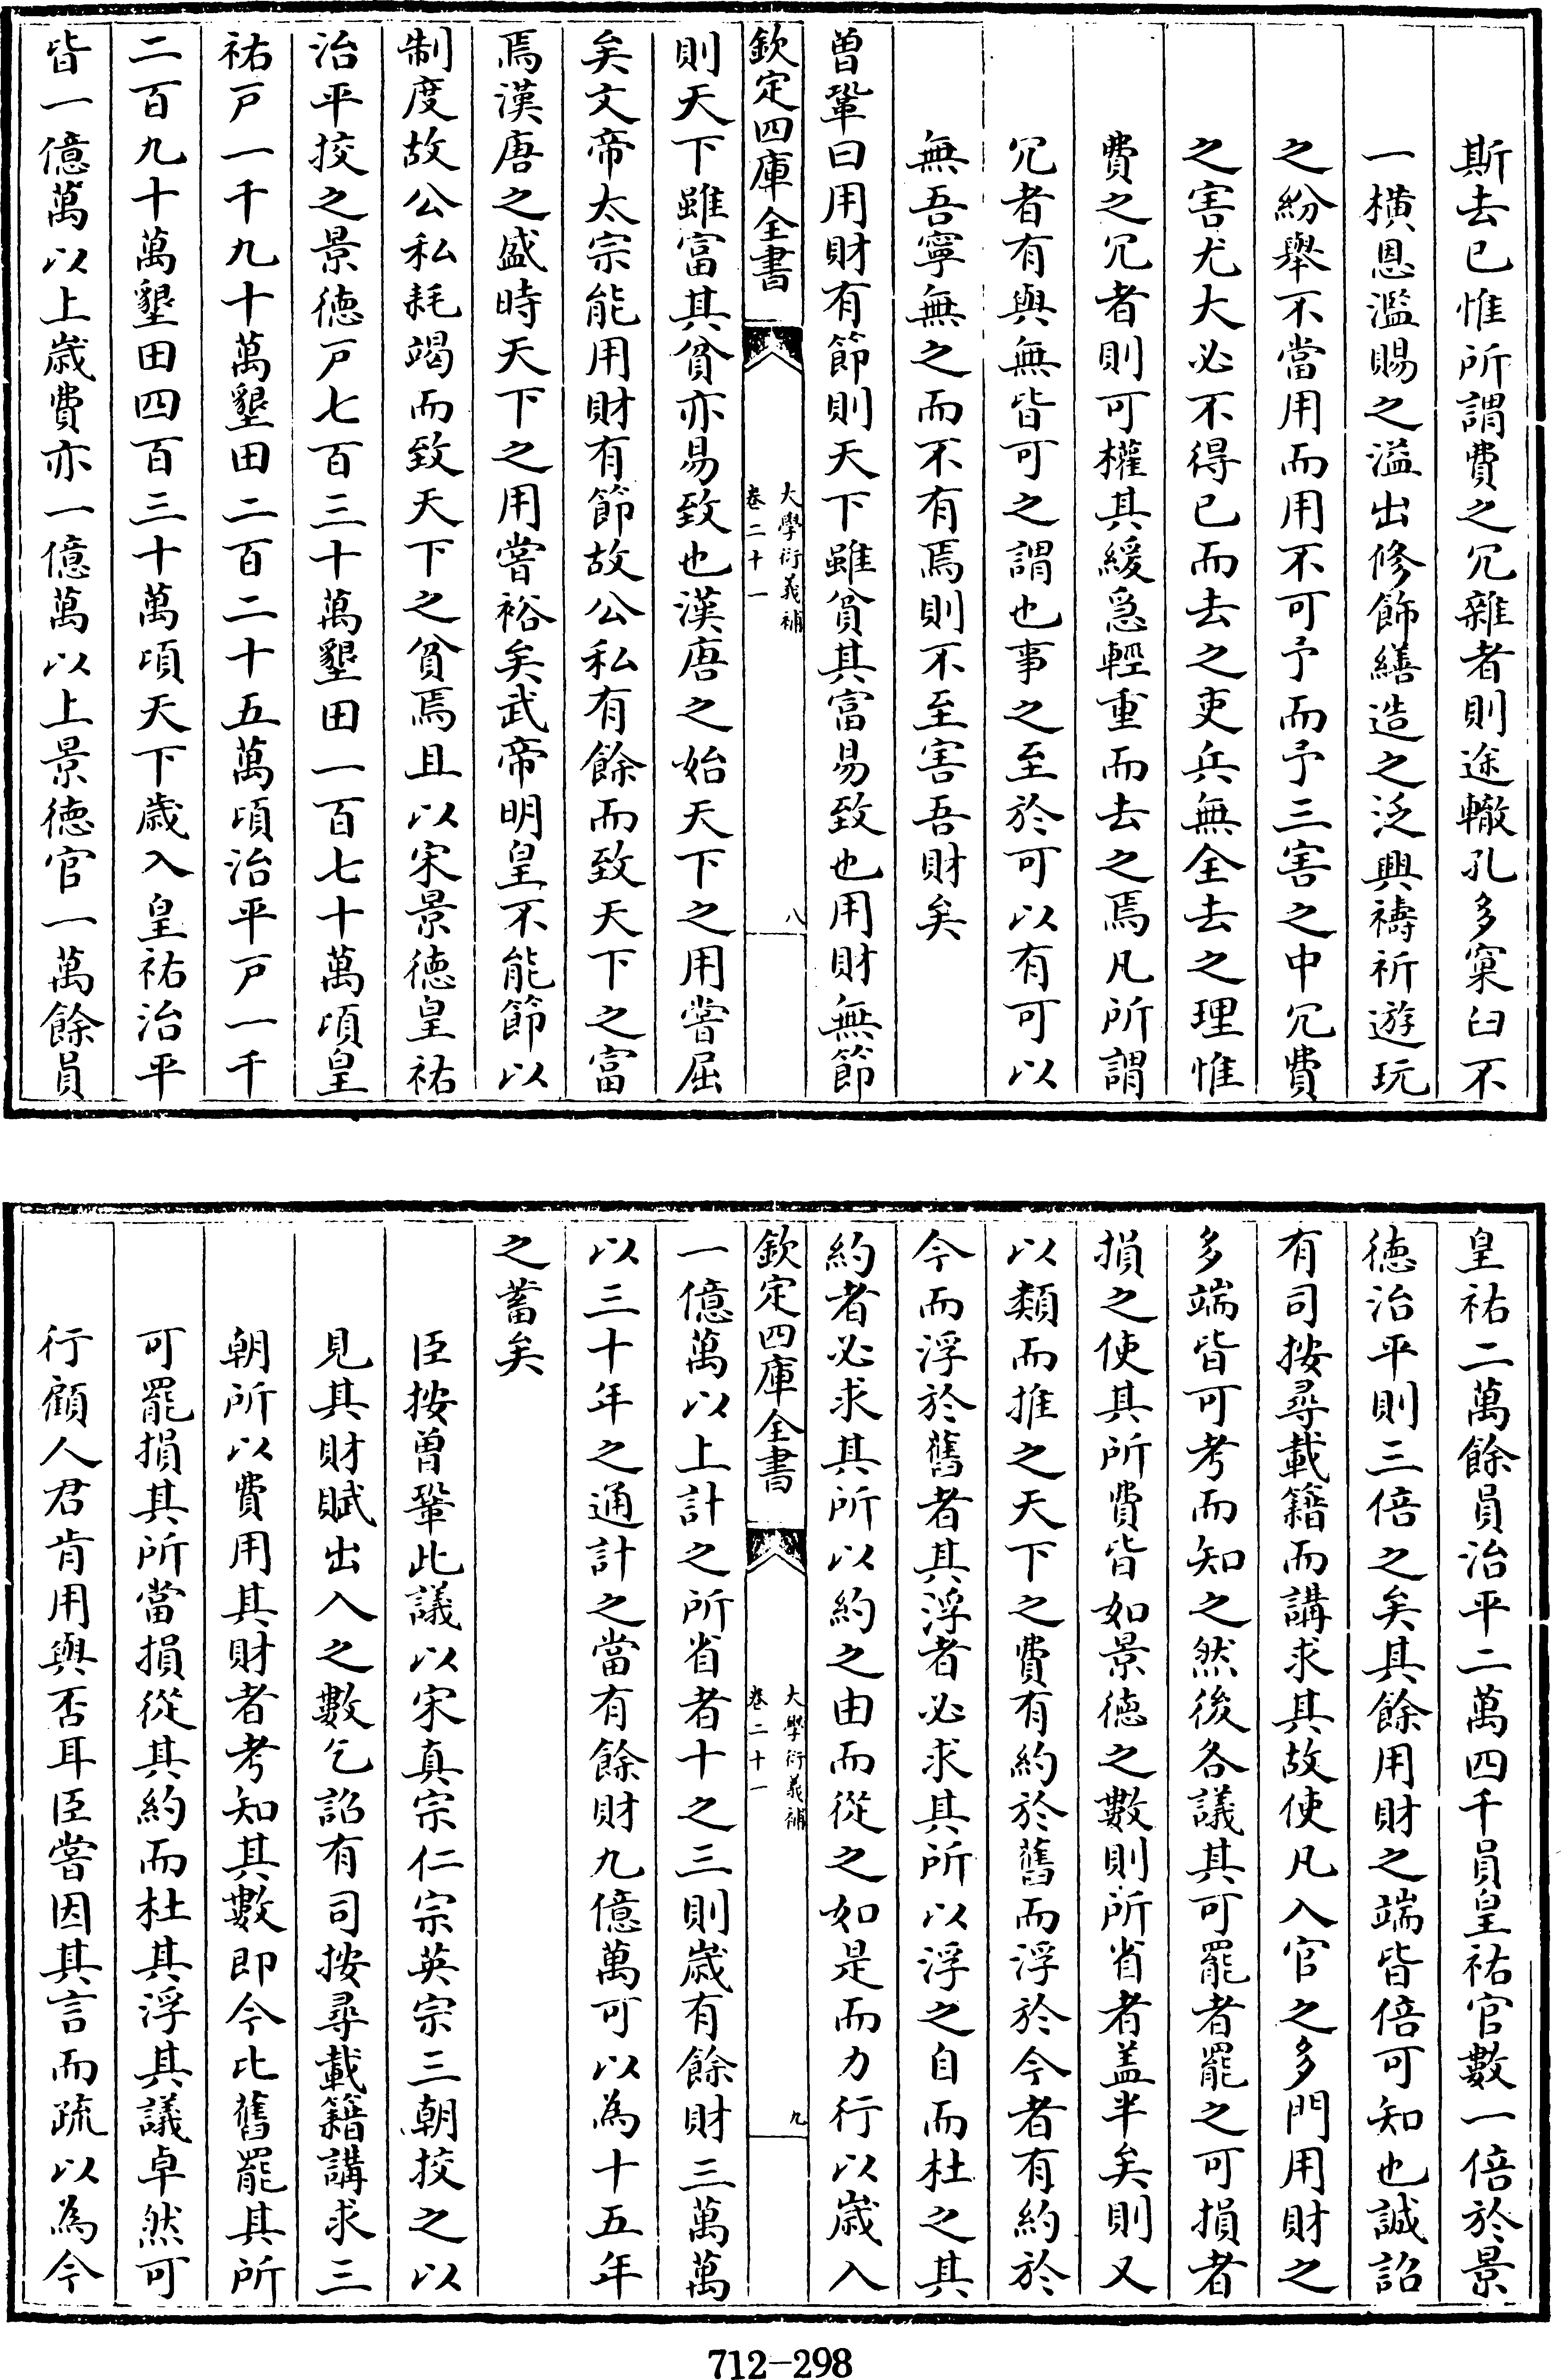 斯去已惟所謂費之冗雜者則途轍孔多窠臼不
一橫恩濫賜之溢出修飾繕造之泛興禱祈遊玩
之紛舉不當用而用不可予而予三害之中冗費
之害尤大必不得已而去之吏兵無全去之理惟
費之冗者則可權其緩急輕重而去之焉凡所謂
冗者有與無皆可之謂也事之至於可以有可以
無吾寧無之而不有焉則不至害吾財矣
曾鞏曰用財有節則天下雖貧其富易致也用財無節
欽定四庫全書
大學衍義補
卷二十一
八
則天下雖富其貧亦易致也漢唐之始天下之用嘗屈
矣文帝太宗能用財有節故公私有餘而致天下之富
焉漢唐之盛時天下之用嘗裕矣武帝明皇不能節以
制度故公私耗竭而致天下之貧焉且以宋景徳皇祐
治平挍之景德戸七百三十萬墾田一百七十萬頃皇
祐戸一千九十萬墾田二百二十五萬頃治平戸一千
二百九十萬墾田四百三十萬頃天下歳入皇祐治平
皆一億萬以上歳費亦一億萬以上景徳官一萬餘員
皇祐二萬餘員治平二萬四千員皇祐官數一倍於景
徳治平則三倍之矣其餘用財之端皆倍可知也誠詔
有司按尋載籍而講求其故使凡入官之多門用財之
多端皆可考而知之然後各議其可罷者罷之可損者
損之使其所費皆如景徳之數則所省者盖半矣則又
以類而推之天下之費有約於舊而浮於今者有約於
今而浮於舊者其浮者必求其所以浮之自而杜之其
約者必求其所以約之由而從之如是而力行以歳入
欽定四庫全書
大學衍義補
卷二十一
九
一億萬以上計之所省者十之三則歳有餘財三萬萬
以三十年之通計之當有餘財九億萬可以為十五年
之蓄矣
臣按曾鞏此議以宋真宗仁宗英宗三朝挍之以
見其財賦出入之數乞詔有司按尋載籍講求三
朝所以費用其財者考知其數即今比舊罷其所
可罷損其所當損從其約而杜其浮其議卓然可
行顧人君肯用與否耳臣嘗因其言而疏以為今
712-298